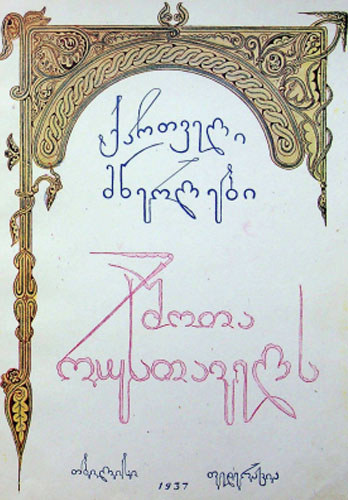 ქართველი
მწერლები
შოთა
რუსთაველს
თბილისი 1937 ფედერაცია